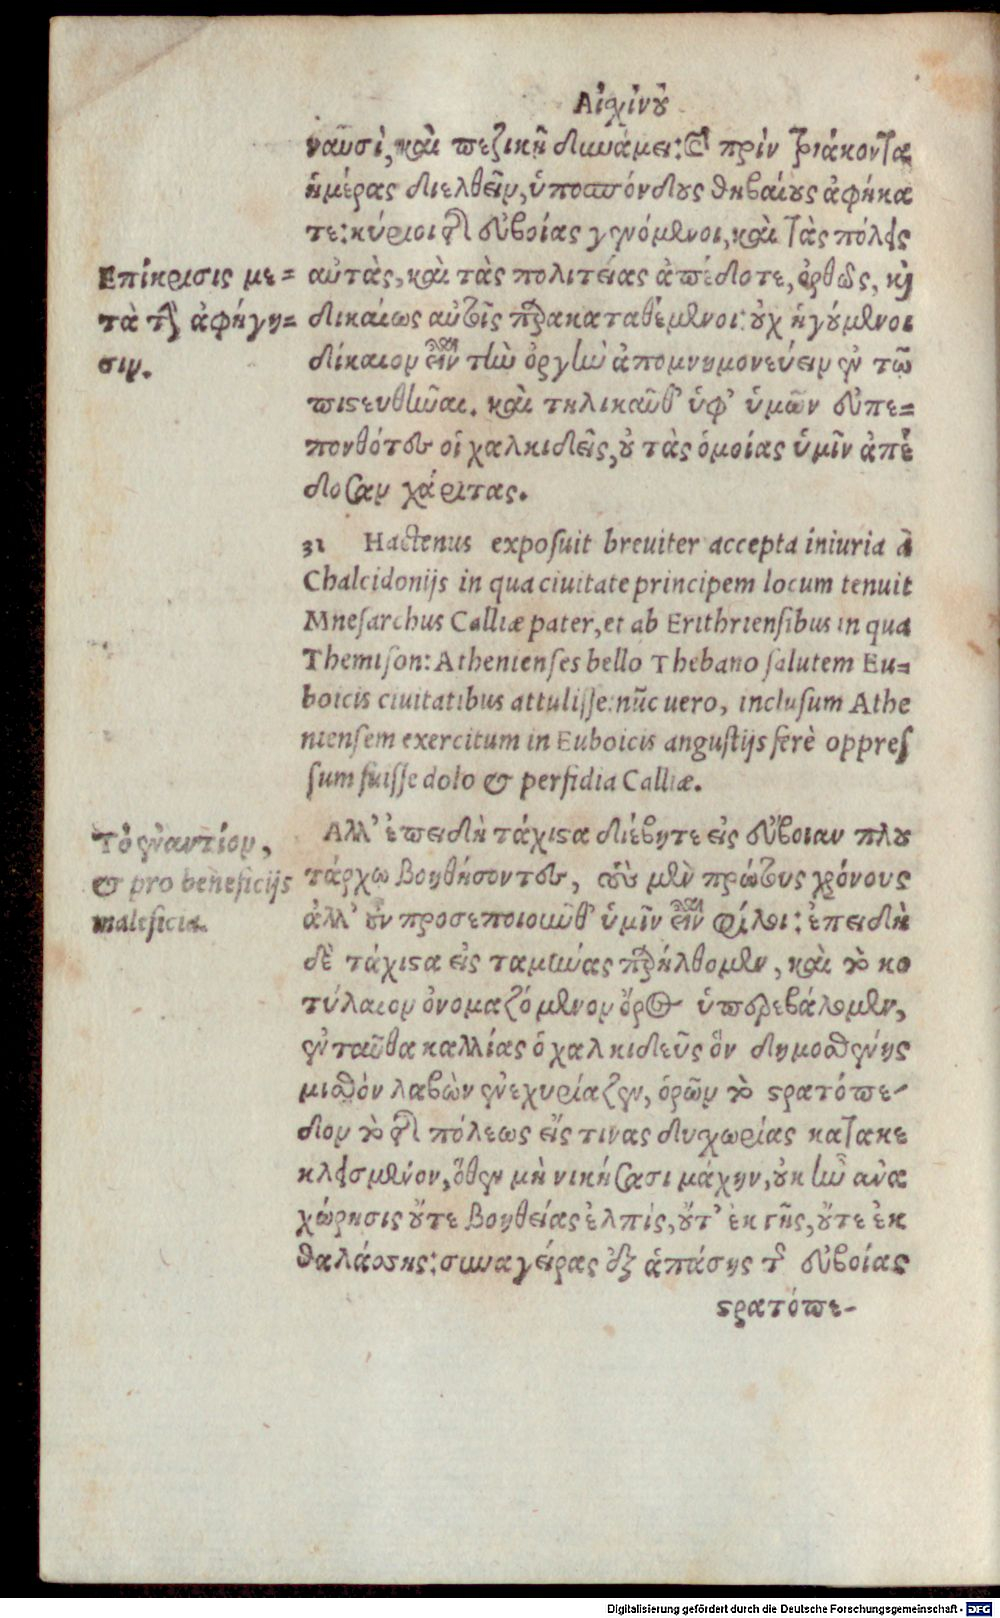 Αἰχίνου
ναῦσὶ, καὶ πεζικῇ δυνάμει: καὶ πρὶν τριάκοντα
ἡμέρας διελθεῖν, ὑποσπόνδους θηβαίους ἀφήκα
τε: κύριοι τῆς εὐβοίας γενόμενοι, καὶ τὰς πόλεις
Επίκρισις με=
τὰ τὴν ἀφήγη=
σιν.
αὐτὰς, καὶ τὰς πολιτείας ἀπέδοτε, ὀρθῶς, καὶ
δικαίως αὐτοῖς παρακαταθέμενοι: οὐχ ἡγούμενοι
δίκαιον εἶναι τὴν ὀργὴν ἀπομνημονεύειν ἐν τῷ
πιστευθῆναι. καὶ τηλικαῦθ' ὑφ' ὑμῶν εὖ πε=
πονθότες οἱ χαλκιδεῖς, οὐ τὰς ὁμοίας ὑμῖν ἀπέ
δοσαν χάριτας.
31 Hactenus exposuit breuiter accepta iniuria à
Chalcidonijs in qua ciuitate principem locum tenuit
Mnesarchus Calliæ pater, et ab Erithriensibus in qua
Themison: Athenienses bello Thebano salutem Eu=
boicis ciuitatibus attulisse: nũc uero, inclusum Athe
niensem exercitum in Euboicis angustijs ferè oppres
sum fuisse dolo & perfidia Calliæ.
Τὸ ἐναντίον,
& pro beneficijs
maleficia.
Αλλ' ἐπειδὴ τάχιστα διέβητε εἰς εὔβοιαν πλου
τάρχῳ βοηθήσοντες, τοὺς μὲν πρώτους χρόνους
ἀλλ' οὖν προσεποιοῦνθ' ὑμῖν εἶναι φίλοι: ἐπειδὴ
δὲ τάχιστα εἰς ταμύνας παρήλθομεν, καὶ τὸ κο
τύλαιον ὀνομαζόμενον ὄρος ὑπερεβάλομεν,
ἐνταῦθα καλλίας ὁ χαλκιδεὺς ὃν δημοσθένης
μισθὸν λαβὼν ἐνεχυρίαζεν, ὁρῶν τὸ στρατόπε-
δον τὸ τῆς πόλεως εἴς τινας δυχωρίας κατακε
κλεισμένον, ὅθεν μὴ νικήσασι μάχην, οὐκ ἦν ἀνα
χώρησις οὔτε βοηθείας ἐλπὶς, οὔτ' ἐκ γῆς, οὔτε ἐκ
θαλάσσης: συναγείρας ἐξ ἁπάσης τῆς εὐβοίας
στρατόπε-
Digitalisierung gefördert durch die Deutsche Forschungsgemeinschaft - DFG